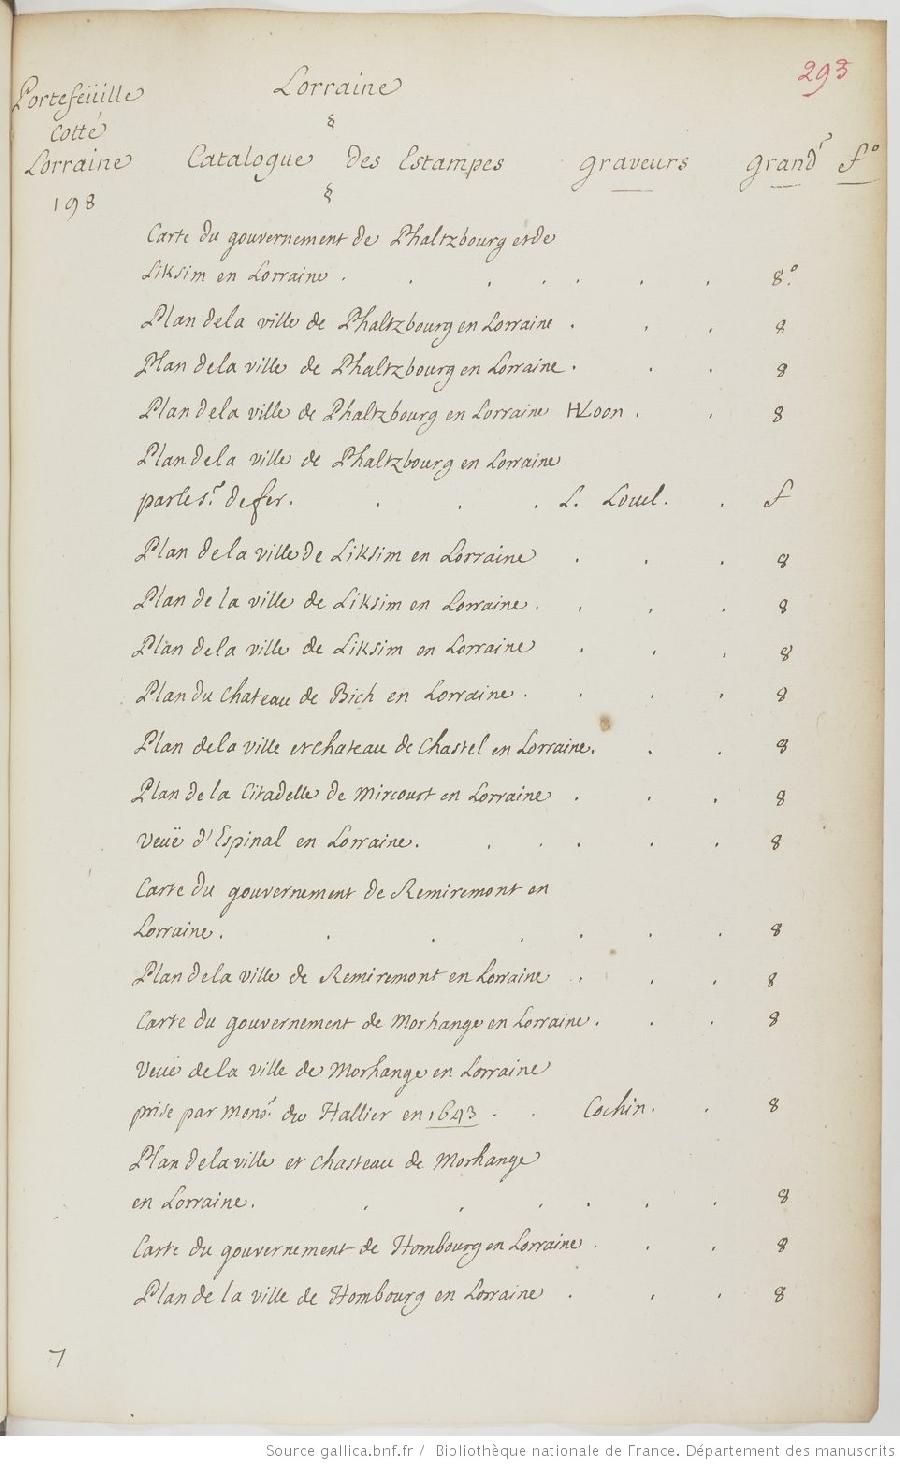 293
Portefeüille
Cotté
Lorraine
198
Lorraine
§
Catalogue Des Estampes Graveurs Grandr fo
§
Carte du gouvernement de Phaltzbourg et de
Liksim en Lorraine . . . . . . . 8o.
Plan de la ville de Phaltzbourg en Lorraine . . . 8
Plan de la ville de Phaltzbourg en Lorraine . . . 8
Plan de la ville de Phaltzbourg en Lorraine HLoon . . 8
Plan de la ville de Phaltzbourg en Lorraine
par le sr. de fer. . . . L. Louel. . f
Plan de la ville de Liksim en Lorraine . . . 8
Plan de la ville de Liksim en Lorraine . . . . 8
Plan de la ville de Liksim en Lorraine . . . 8
Plan du Chateau de Bich en Lorraine . . . . 8
Plan de la ville et chateau de Chastel en Lorraine. . . 8
Plan de la Citadelle de Mircourt en Lorraine . . . 8
Veuë d'Espinal en Lorraine. . . . . . 8
Carte du gouvernement de Remiremont en
Lorraine. . . . . . . 8
Plan de la ville de Remiremont en Lorraine . . . 8
Carte du gouvernement de Morhange en Lorraine. . . 8
Veüe de la ville de Morhange en Lorraine
prise par Monsr. du Hallier en 1643 . . Cochin. . 8
Plan de la ville et chasteau de Morhange
en Lorraine. . . . . . . 8
Carte du gouvernement de Hombourg en Lorraine . . . 8
Plan de la ville de Hombourg en Lorraine . . . 8
7
Source gallica.bnf.fr / Bibliothèque nationale de France. Département des manuscrits